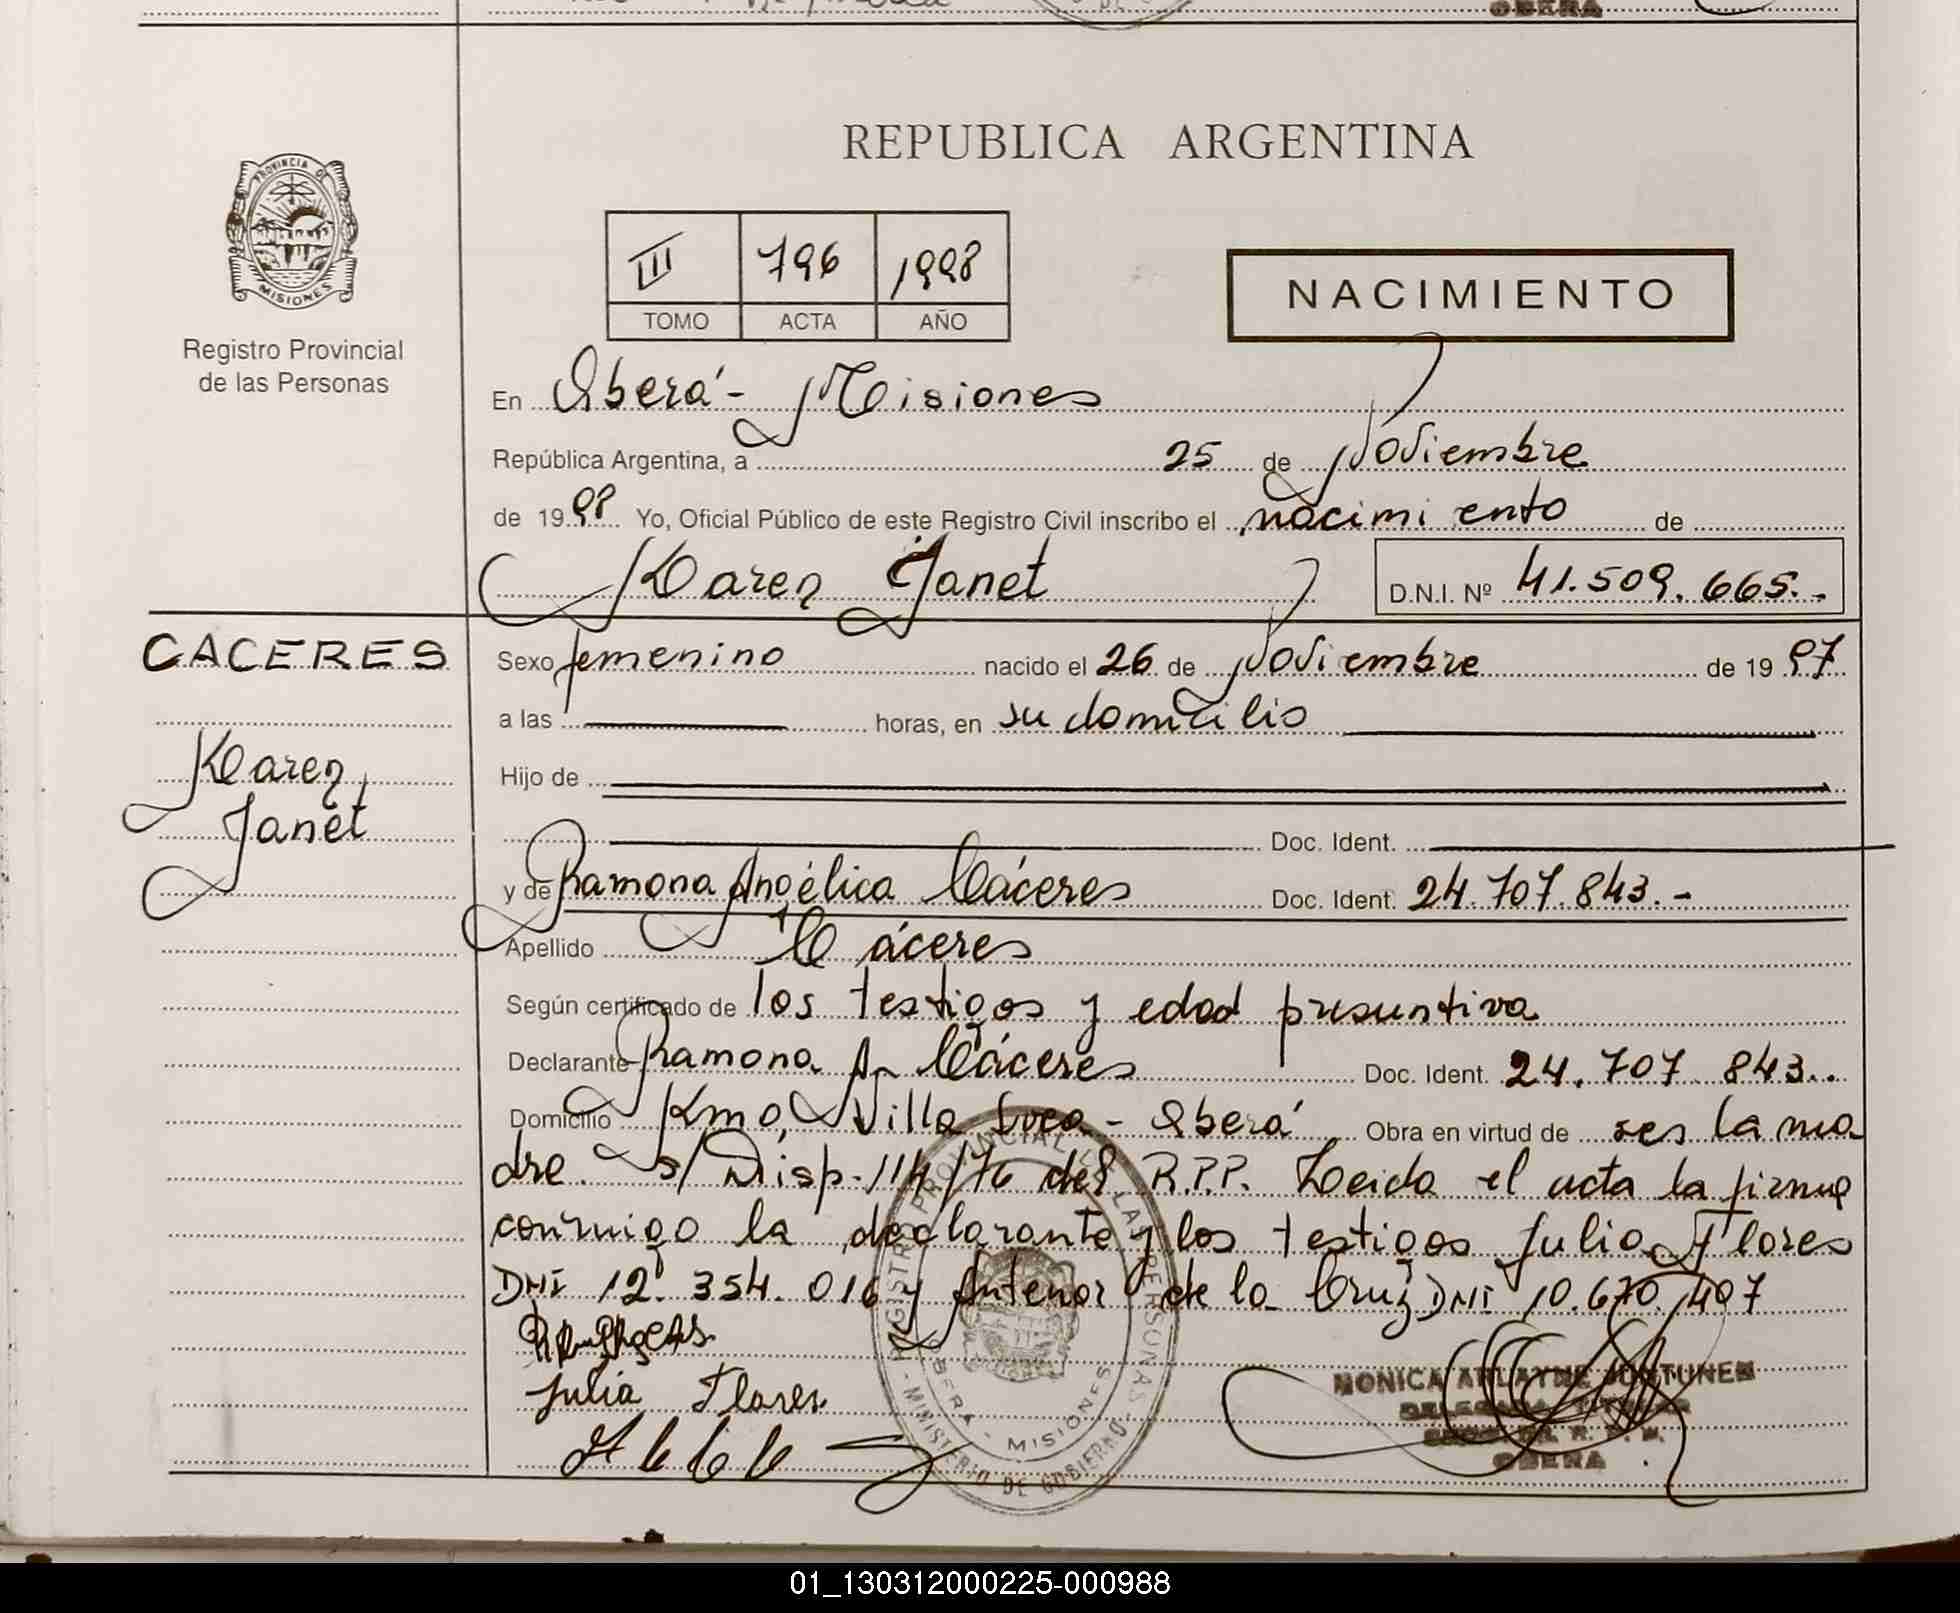 OBERA
REPUBLICA ARGENTINA
PROVINCIA D
MISIONES
Registro Provincial
de las Personas
III 796 1998
TOMO ACTA AÑO
NACIMIENTO
En Oberá - Misiones
República Argentina, a 25 de Noviembre
de 1998 Yo, Oficial Público de este Registro Civil inscribo el nacimiento de
Karen Janet D.N.I. Nº 41.509.665.-
CACERES
Karen
Janet
Sexo femenino nacido el 26 de Noviembre de 1997
a las horas, en su domicilio
Hijo de
Doc. Ident.
y de Ramona Angélica Cáceres Doc. Ident. 24.707.843.-
Apellido Cáceres
Según certificado de los testigos y edad presuntiva
Declarante Ramona A. Cáceres Doc. Ident. 24.707.843..
Domicilio Km 0, Villa - Oberá Obra en virtud de ser la ma
dre. s/ Disp. 114/76 del R.P.P. Leida el acta la firma
conmigo la declarante y los testigos Julia Flores
DNI 12.354.016 y Antenor de la Cruz DNI 10.670.407
Julia Flores
REGISTRO PROVINCIAL DE LAS PERSONAS
MINISTERIO DE GOBIERNO
OBERA - MISIONES
MONICA
DELEGADA TITULAR
OBERA
01_130312000225-000988